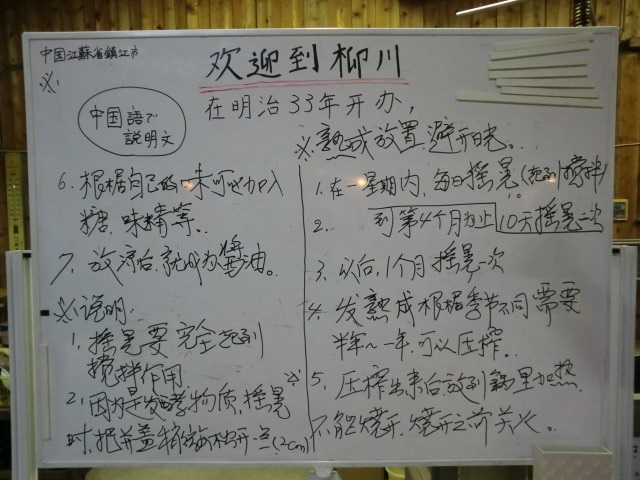 中国江蘇省鎮江市
欢迎到柳川
在明治33年开办,
※
中国語で
説明文
※熟成放置,避开日光...
1. 在一星期内,每日摇晃(起到搅拌)
2. 到第4个月为止 10天摇晃一次
3. 以后,1个月摇晃一次
4. 发熟成根据季节不同需要
半年~一年,可以压榨。
5. 压榨出来后放到锅里加热
不能烧开,烧开之前关火。
6. 根据自己的味可以加入
糖,味精等..
7. 放凉后,就成为酱油。
※说明:
1. 摇晃要完全起到
搅拌作用
2. 因为是发酵物质,摇晃
时,把瓶盖稍微松开一点(2cm)